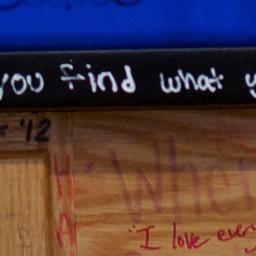 you find what y
'12
Wher
H
A
I love ever